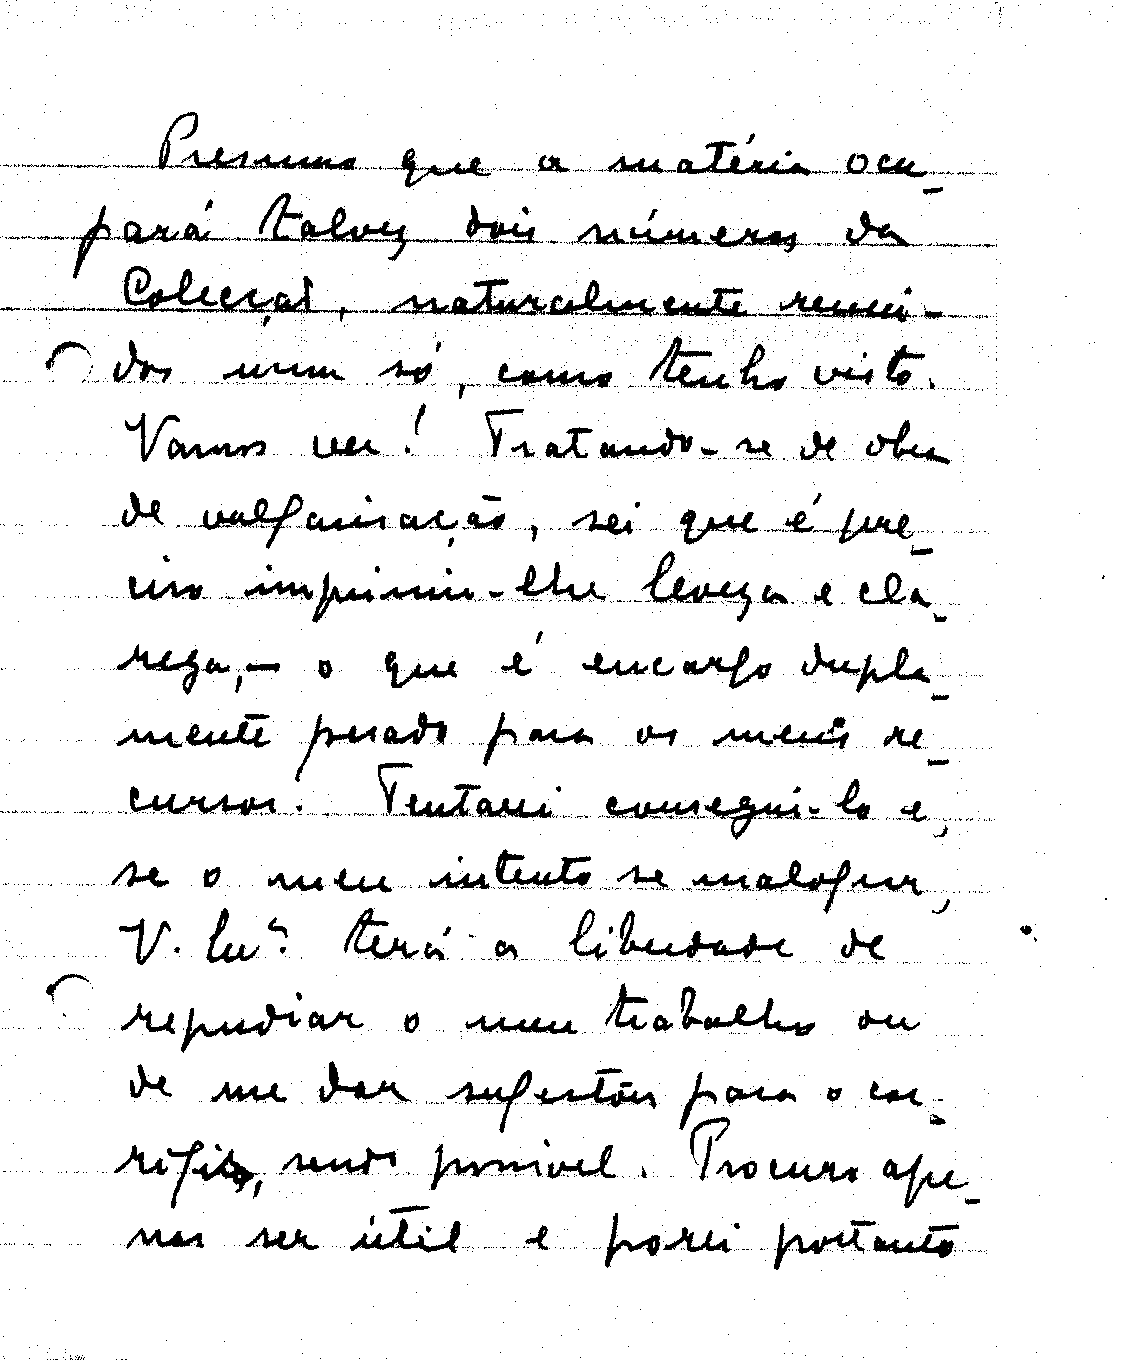 Presumo que a matéria ocu-
pará talvez dois números da
Colecção, naturalmente reuni-
dos num só, como tenho visto.
Vamos ver! Tratando-se de obra
de vulgarisação, sei que é pre-
ciso imprimir-lhe leveza e cla-
reza, — o que é encargo dupla-
mente pesado para os meus re-
cursos. Tentarei consegui-lo e,
se o meu intento se malograr,
V. terá a liberdade de
repudiar o meu trabalho ou
de me dar sugestões para o cor-
rigir, sendo possivel. Procuro ape-
nas ser útil e porei portanto